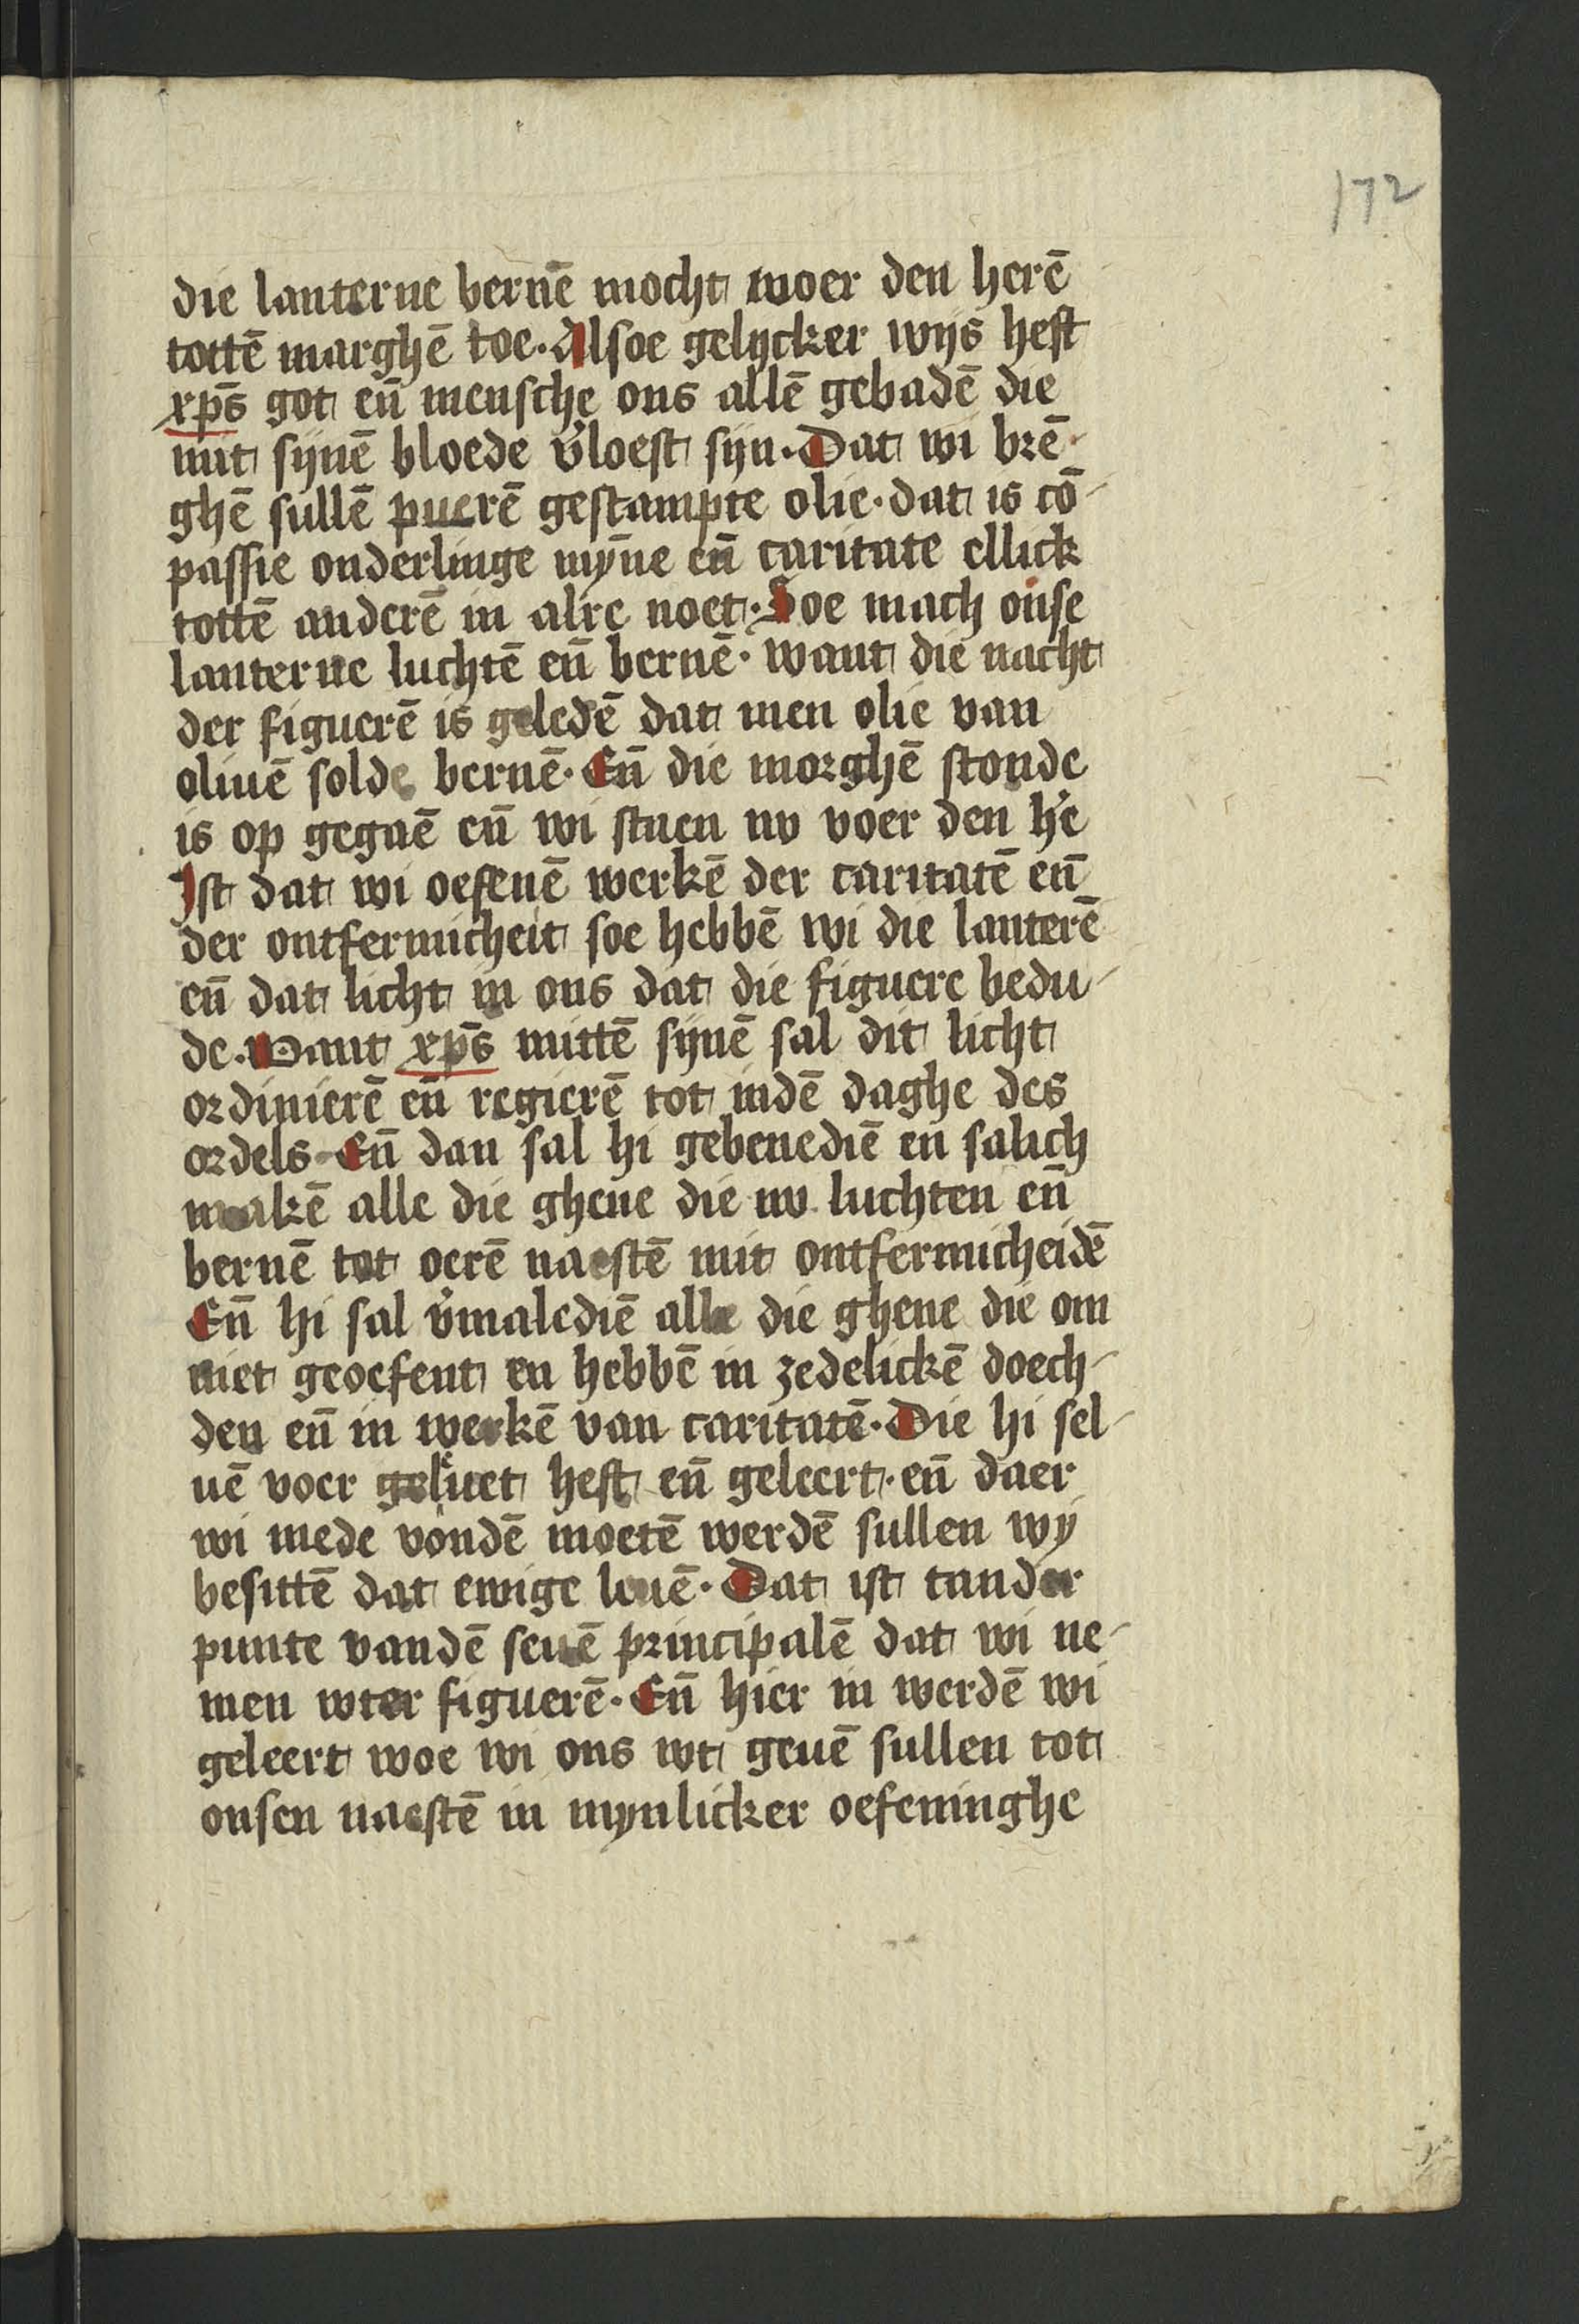 172
die lanterne bernē mocht woer den herē
tottē marghē toe. Alsoe gelycker wijs heft
xp̄s got en̄ mensche ons allē gebadē die
mit sijnē bloede v̓loest sijn. Dat wi brē-
ghē sullē puerē gestampte olie. dat is cō-
passie onderlinge mȳne en̄ caritate ellick
tottē anderē in alre noet. Soe mach onse
lanterne luchtē en̄ bernē. want die nacht
der figuerē is geledē dat men olie van
oliuē solde bernē. En̄ die morghē stonde
is op gegaē en̄ wi staen nv voer den h̓e
Ist dat wi oefenē werkē der caritatē en̄
der ontfermicheit soe hebbē wi die lanterē
en̄ dat licht in ons dat die figuere bedu-
de. Want xp̄s mittē sijnē sal dit licht
ordinierē en̄ regierē tot indē daghe des
ordels. En̄ dan sal hi gebenediē en salich
makē alle die ghene die nv luchten en̄
bernē tot oerē naestē mit ontfermicheidē
En̄ hi sal v̓malediē alle die ghene die om
niet geoefent en hebbē in zedelickē doech-
den en̄ in werkē van caritatē. Die hi sel-
uē voer geluet heft en̄ geleert. en̄ daer
wi mede vondē moetē werdē sullen wy
besittē dat ewige leuē. Dat ist tander
punte vandē seuē principalē dat wi ne-
men wter figuerē. En̄ hier in werdē wi
geleert woe wi ons wt geuē sullen tot
onsen naestē in mynlicker oefeninghe